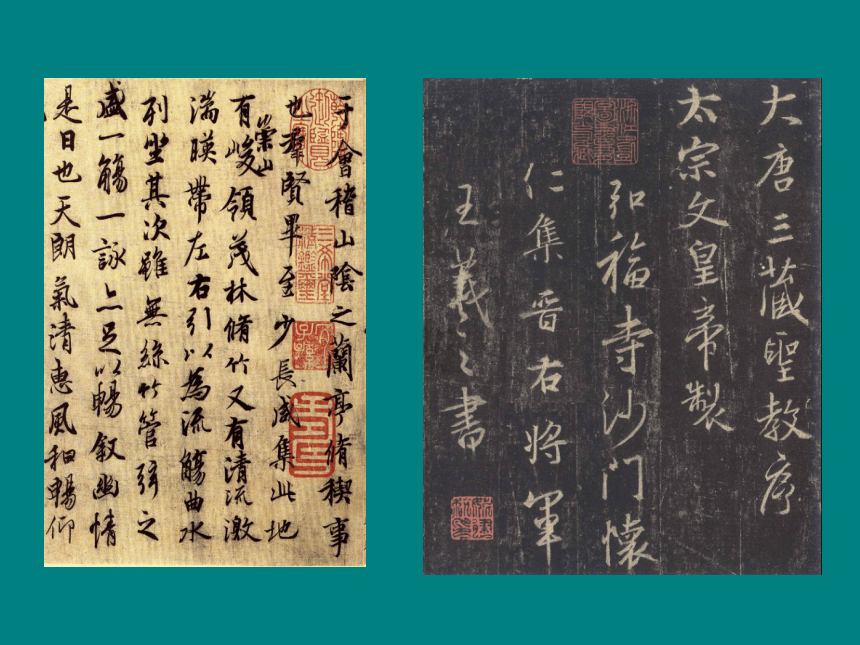 于會稽山陰之蘭亭脩稧事
也羣賢畢至少長咸集此地
有崇山峻領茂林脩竹又有清流激
湍暎帶左右引以為流觴曲水
列坐其次雖無絲竹管弦之
盛一觴一詠亦足以暢敘幽情
是日也天朗氣清惠風和暢仰
大唐三藏聖教序
太宗文皇帝製
弘福寺沙門懷
仁集晉右將軍
王羲之書